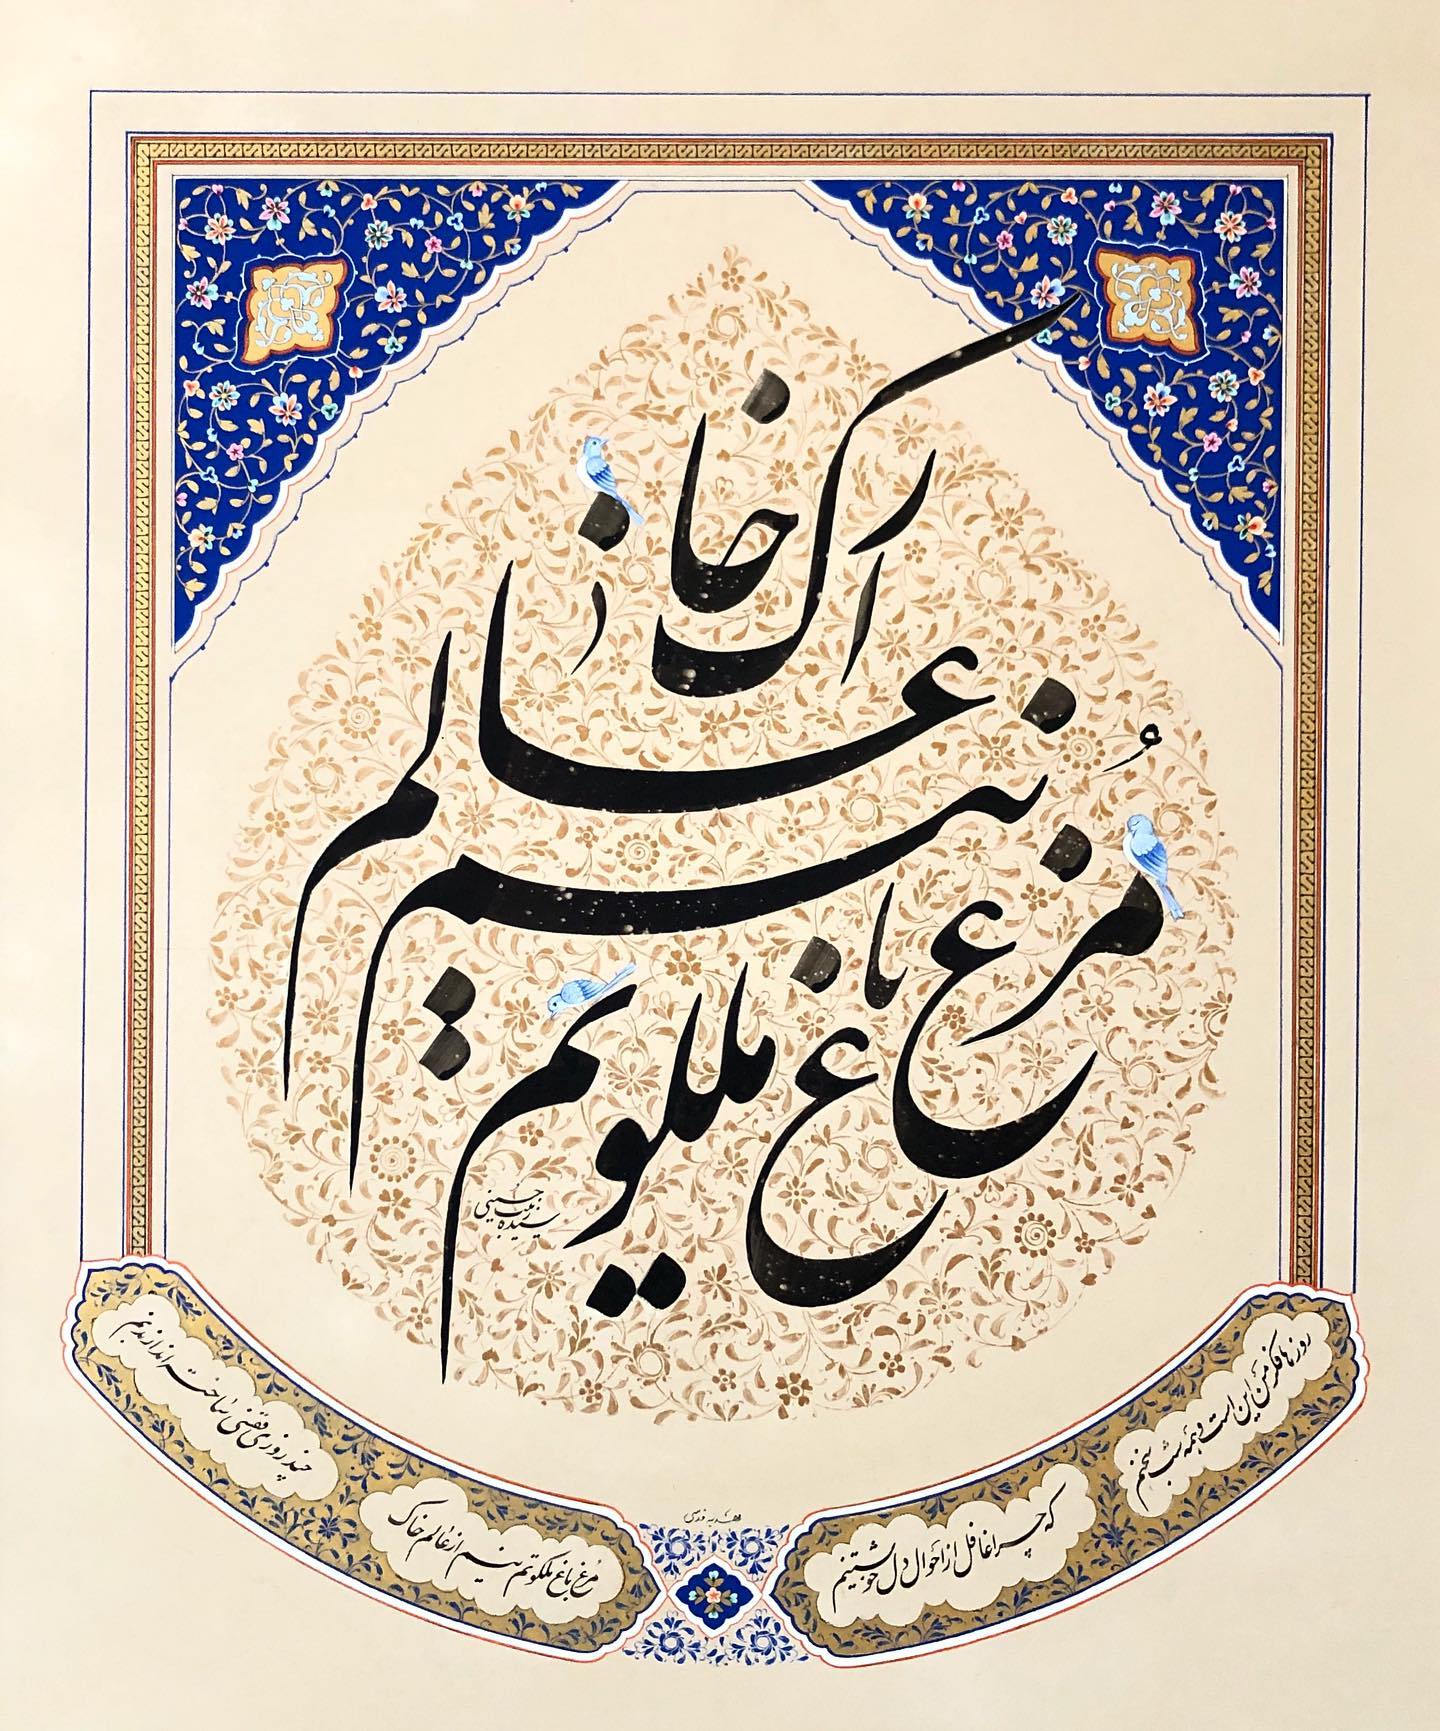 مُرغ باغ ملکوتم
نیم از عالم خاک
سیده زینب حسینی
روزها فکر من این است و همه شب سخنم
که چرا غافل از احوال دل خویشتنم
مُرغ باغ ملکوتم نیم از عالم خاک
چند روزی قفسی ساخته اند از بدنم